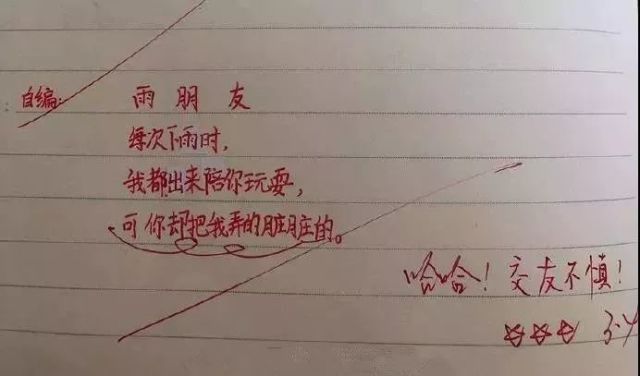 自编: 雨朋友
每次下雨时,
我都出来陪你玩耍,
可你却把我弄的脏脏的。
哈哈!交友不慎!
☆☆☆ 3.4